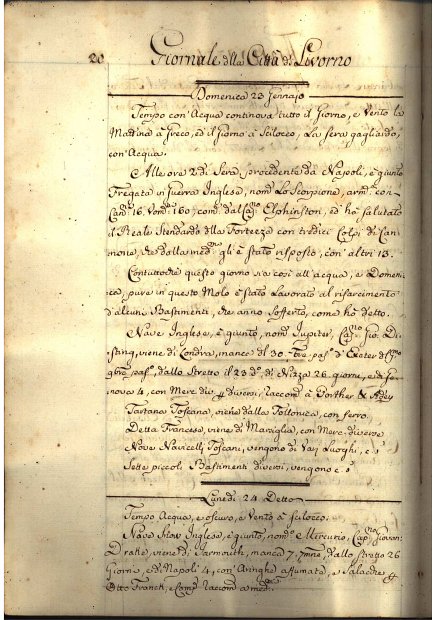 20 Giornale della Città di Livorno
Domenica 23 Gennajo
Tempo con Acqua continova tutto il Giorno, e Vento la
Mattina à Greco, ed il Giorno à Scilocco, La sera gagliardo,
con Acqua.
Alle ore 2 di Sera, procedente da Napoli, è giunto
Fregata in Guerra Inglese, nom.ta Lo Scorpione, arm.ta con
Can.ni 16, Vom.ni 160, com.ta dal Cap.no Elphinston, ed hà salutato
il Reale Stendardo della Fortezza con tredici Colpi di Can-
none, che dalla med.ma gli è stato risposto, con altri 13.
Contuttoche questo giorno sia così all'acqua, e Domeni-
ca, pure in questo Molo è stato Lavorato al risarcimento
d'alcuni Bastimenti, che anno sofferto, come hò detto.
Nave Inglese, è giunto, nom.ta Jupiter, Cap.no Gio: Di-
sting, viene di Londra, manca dal 30
dallo Stretto il 23 d.o di Nizza 26 giorni, e di Ge-
nova 4, con Merc. diverse, raccom.ta à Porther &
Tartana Toscana, viene dalla Follonica, con ferro.
Detta Francese, viene di Marsiglia, con Merc. diverse
Nove Navicelli Toscani, vengono da Varj Luoghi, e
Sette piccoli Bastimenti diversi, vengono
Lunedì 24 Detto
Tempo Acqua, e oscuro, e Vento à Scilocco.
Nave Inglese, è giunto, nom.ta Mercurio, Cap.no Giovan:
Drake, viene di Yarmouth, manca 7. dallo Stretto 26
Giorni, e di Napoli 4, con Aringhe affumate, e Salacche
Otto Franck, e Comp. raccom.ta